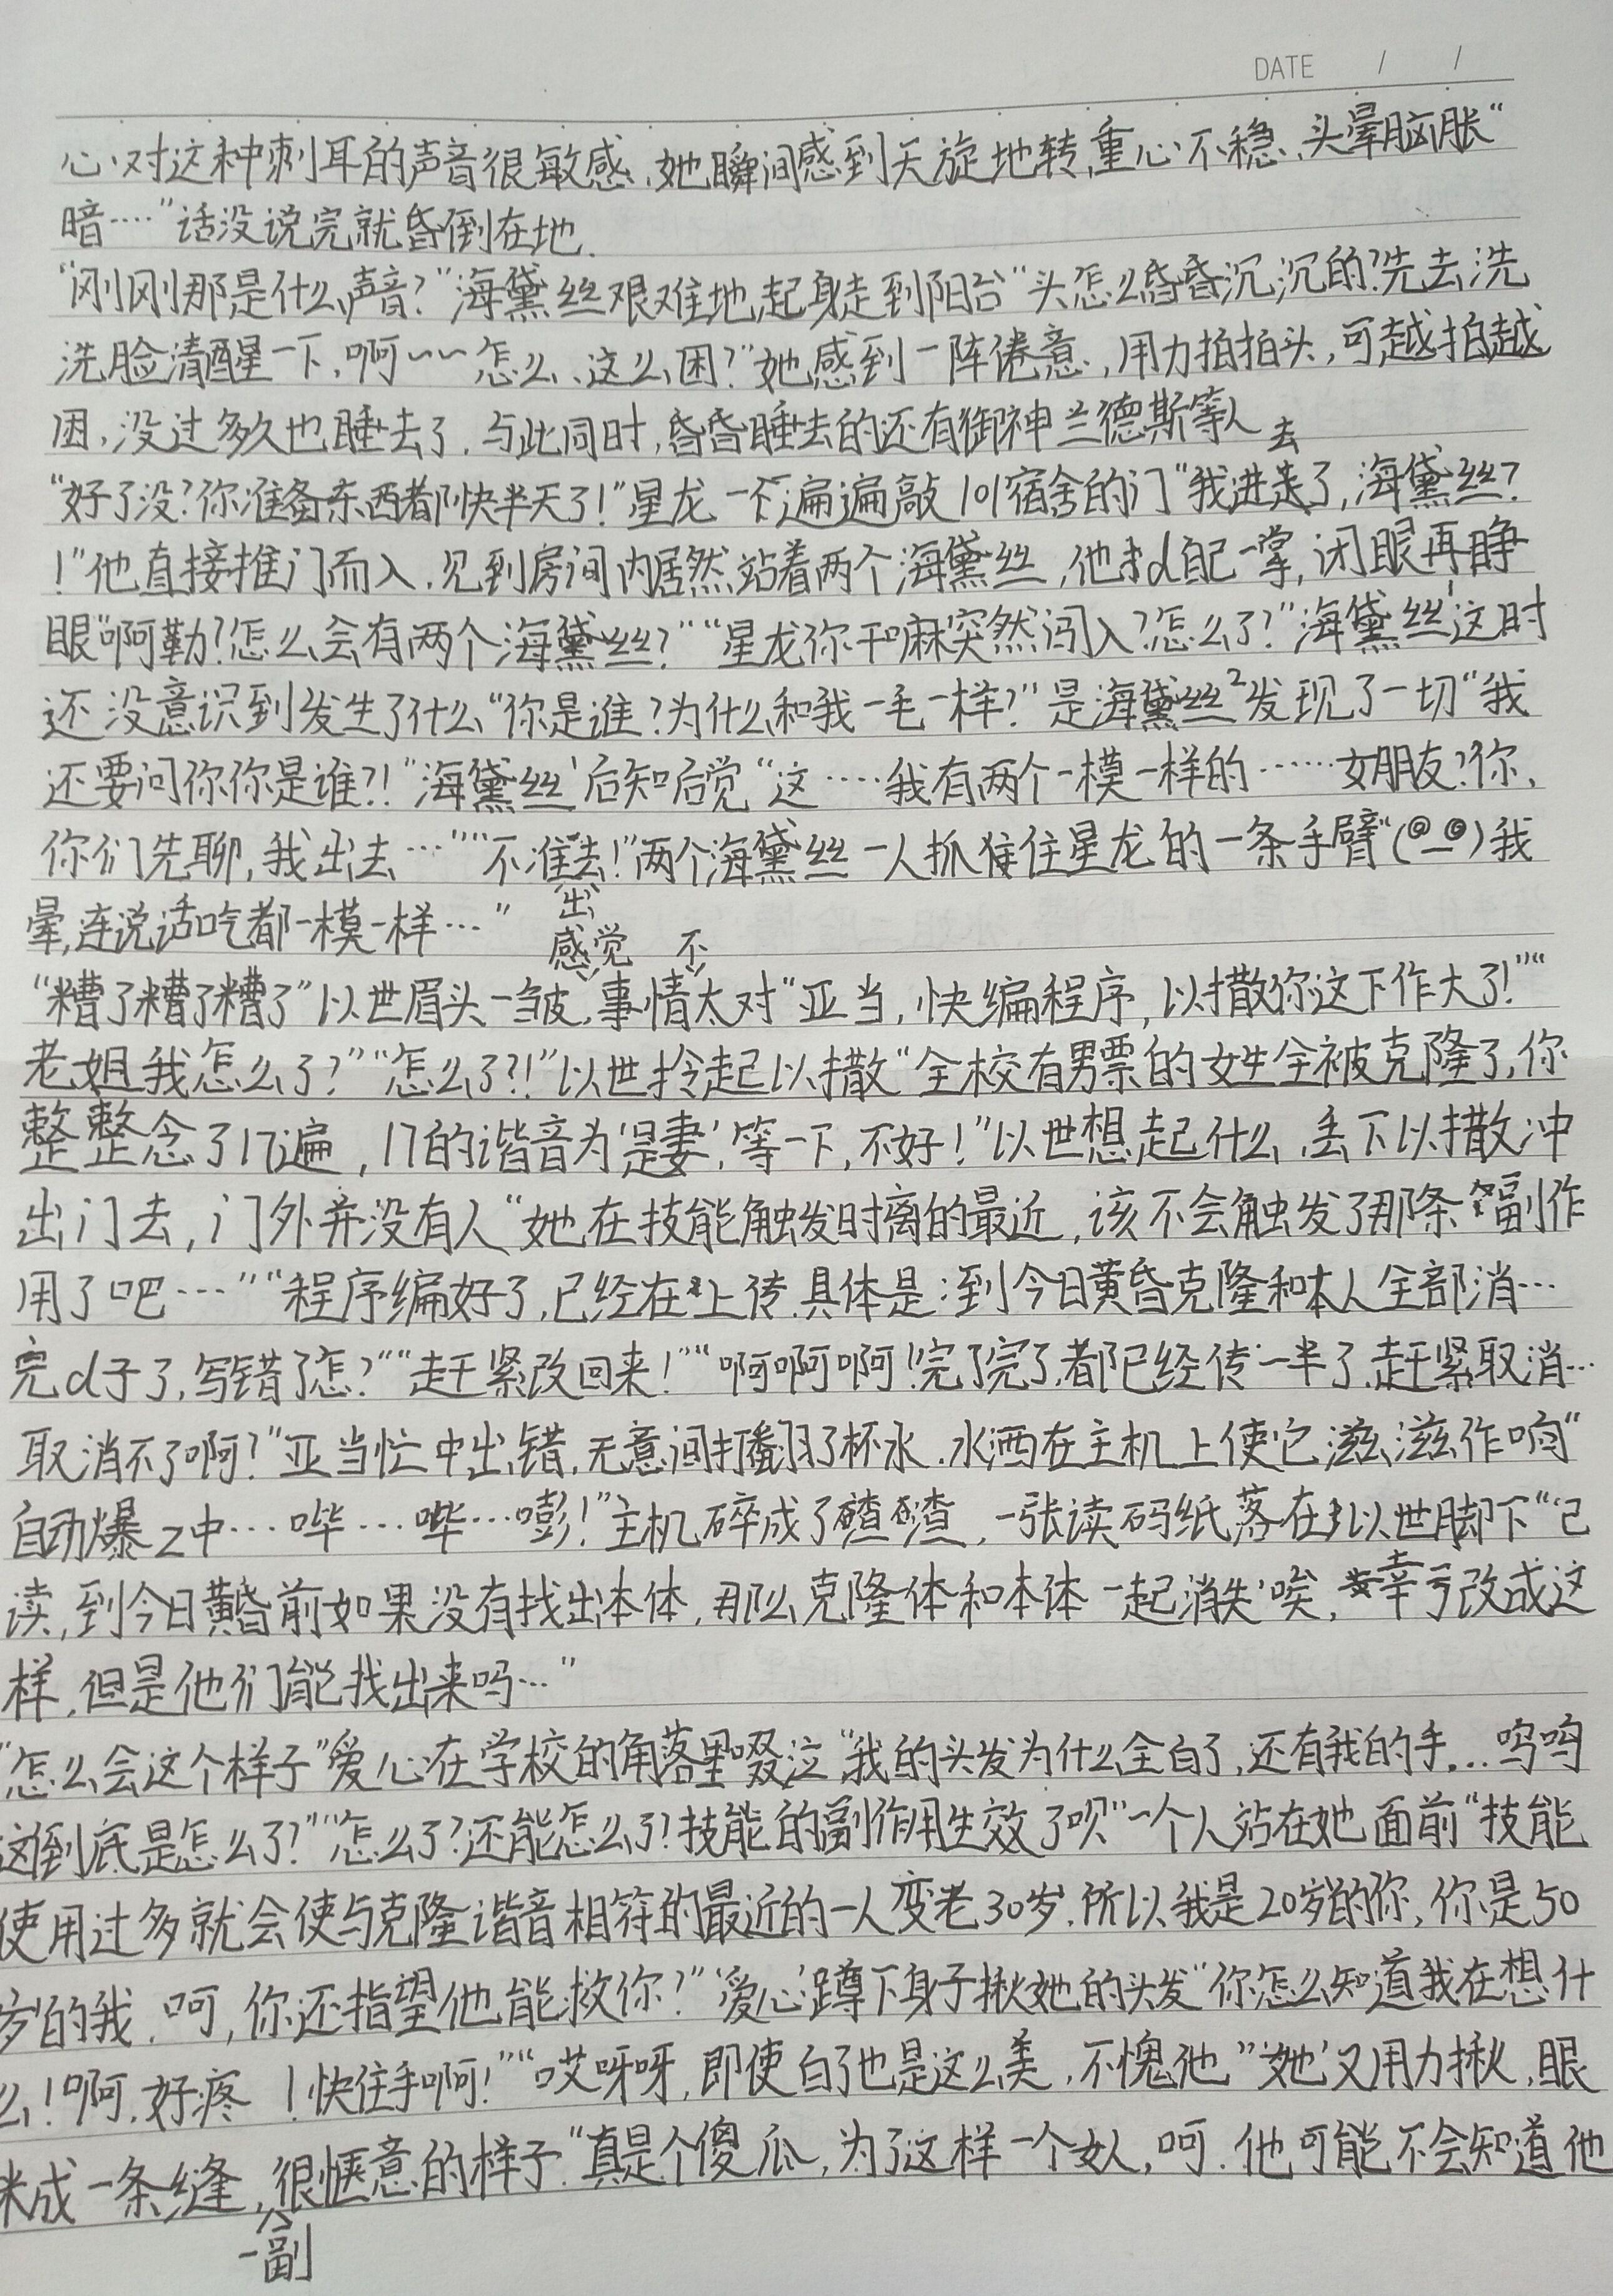 DATE / /
心对这种刺耳的声音很敏感,她瞬间感到天旋地转,重心不稳、头晕脑胀“
暗……”话没说完就昏倒在地.
“刚刚那是什么声音?”海黛丝艰难地起身走到阳台“头怎么昏昏沉沉的?先去洗
洗脸清醒一下,啊~~怎么、这么困?”她感到一阵倦意,用力拍拍头,可越拍越
困,没过多久也睡去了.与此同时,昏昏睡去的还有御神兰德斯等人
“好了没?你准备东西都快半天了!”星龙一遍遍敲101宿舍的门“我进去了,海黛丝?
!”他直接推门而入.见到房间内居然站着两个海黛丝,他打自己一掌,闭眼再睁
眼“啊勒?怎么会有两个海黛丝?”“星龙你干嘛突然闯入?怎么了?”海黛丝¹这时
还没意识到发生了什么“你是谁?为什么和我一毛一样?”是海黛丝²发现了一切“我
还要问你你是谁?!”海黛丝¹后知后觉“这……我有两个一模一样的……女朋友?你,
你们先聊,我出去…”“不准出去!”两个海黛丝一人抓住星龙的一条手臂“(@_@)我
晕,连说话吃都一模一样…”
“糟了糟了糟了”以世眉头一皱,感觉事情不太对“亚当,快编程序,以撒你这下作大了!”“
老姐我怎么了?”“怎么了?!”以世拎起以撒“全校有男票的女生全被克隆了,你
整整念了17遍,17的谐音为‘是妻’,等一下,不好!”以世想起什么,丢下以撒冲
出门去,门外并没有人“她在技能触发时离的最近,该不会触发了那条副作
用了吧…”“程序编好了,已经在上传.具体是:到今日黄昏克隆和本人全部消…
完d子了,写错了怎?”“赶紧改回来!”“啊啊啊!完了完了,都已经传一半了,赶紧取消…
取消不了啊?”亚当忙中出错,无意间打翻了杯水.水洒在主机上使它滋滋作响“
自动爆之中…哔…哔…嘭!”主机碎成了碴碴,一张读码纸落在以世脚下“‘已
读,到今日黄昏前如果没有找出本体,那么克隆体和本体一起消失’唉,幸亏改成这
样,但是他们能找出来吗…”
“怎么会这个样子”爱心在学校的角落里啜泣“我的头发为什么全白了,还有我的手...呜呜
这到底是怎么了?”“怎么了?还能怎么了?技能的副作用生效了呗”一个人站在她面前“技能
使用过多就会使与克隆谐音相符的最近的一人变老30岁.所以我是20岁的你,你是50
岁的我.呵,你还指望他能救你?”‘爱心’蹲下身子揪她的头发“你怎么知道我在想什
么!啊,好疼!快住手啊!”“哎呀呀,即使白了也是这么美,不愧他”‘她’又用力揪,眼
眯成一条缝,一副很惬意的样子“真是个傻瓜,为了这样一个女人,呵.他可能不会知道他